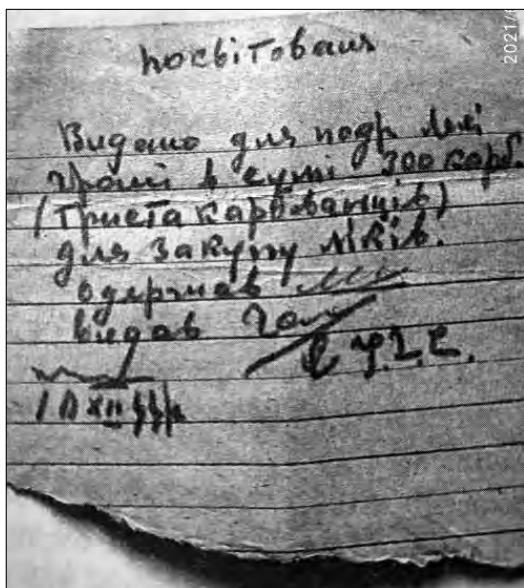 посвітованя
Видано для подр Лелі
гроші в сумі 300 карб.
(триста карбованців)
для закупу ліків.
одержав
видав
10 XII
2021/